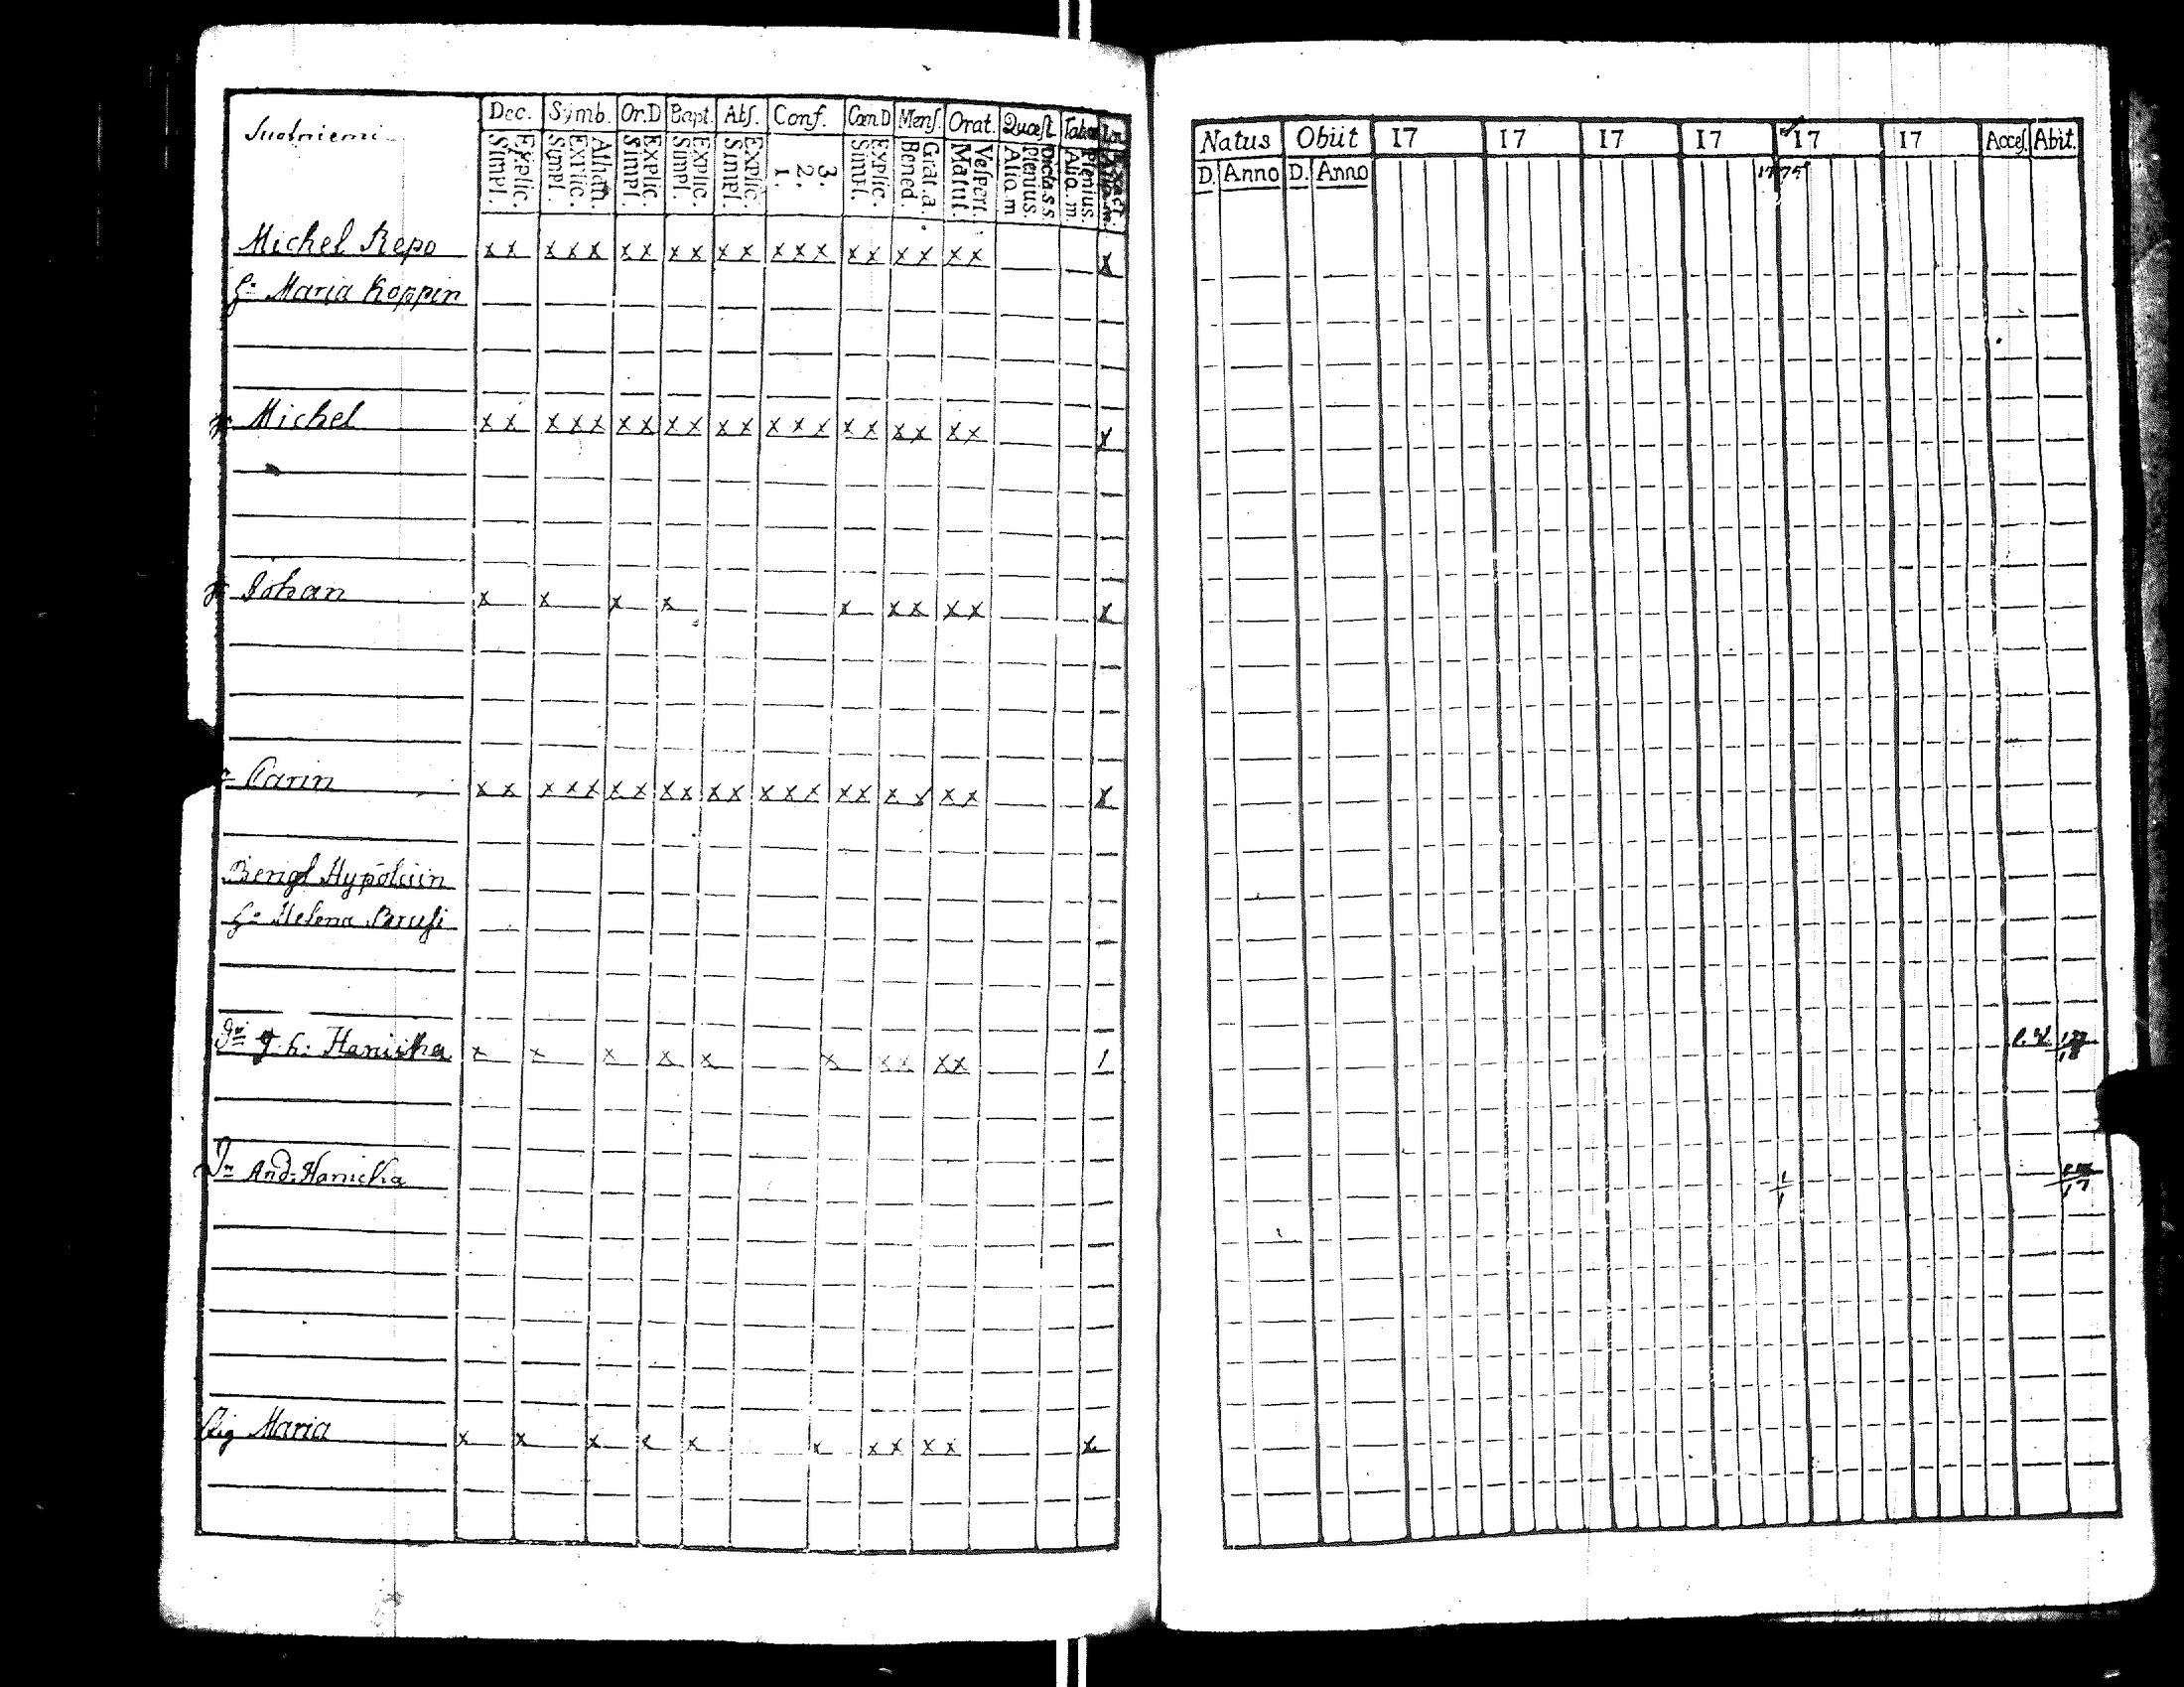 Suoiniemi
Dec. Symb. Or.D Bapt. Abs. Conf. Cœn D Mens. Orat. Quæst Tabu
Explic. Simpl. Athan. Explic. Simpl. Explic. Simpl. Explic. Simpl. Explic. Simpl. 3. 2. 1. Explic. Simpl. Grat. a. Bened. Vespert. Matut. Dicta s.s. Plenius. Aliq. m Plenius. Aliq. m.
Michel Repo x x x x x x x x x x x x x x x x x x x x x
h: Maria Koppin
Michel x x x x x x x x x x x x x x x x x x x x x
Johan x x x x x x x x x x
Carin x x x x x x x x x x x x x x x x x x x x x
Bengt
h: Helena
h: x x x x x x x x x x 1
And:
Pig Maria x x x x x x x x x x x
Natus Obiit 17 17 17 17 17 17 Acces. Abit.
D. Anno D. Anno 1775
1
1